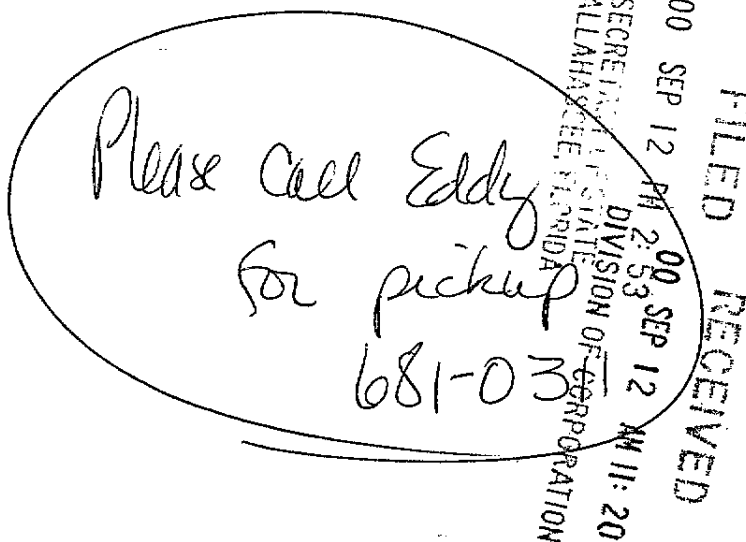 Please call Eddy
for pickup
FILED
00 SEP 12 PM 2:53
SECRETARY OF STATE
TALLAHASSEE, FLORIDA
RECEIVED
00 SEP 12 AM 11:20
DIVISION OF CORPORATION